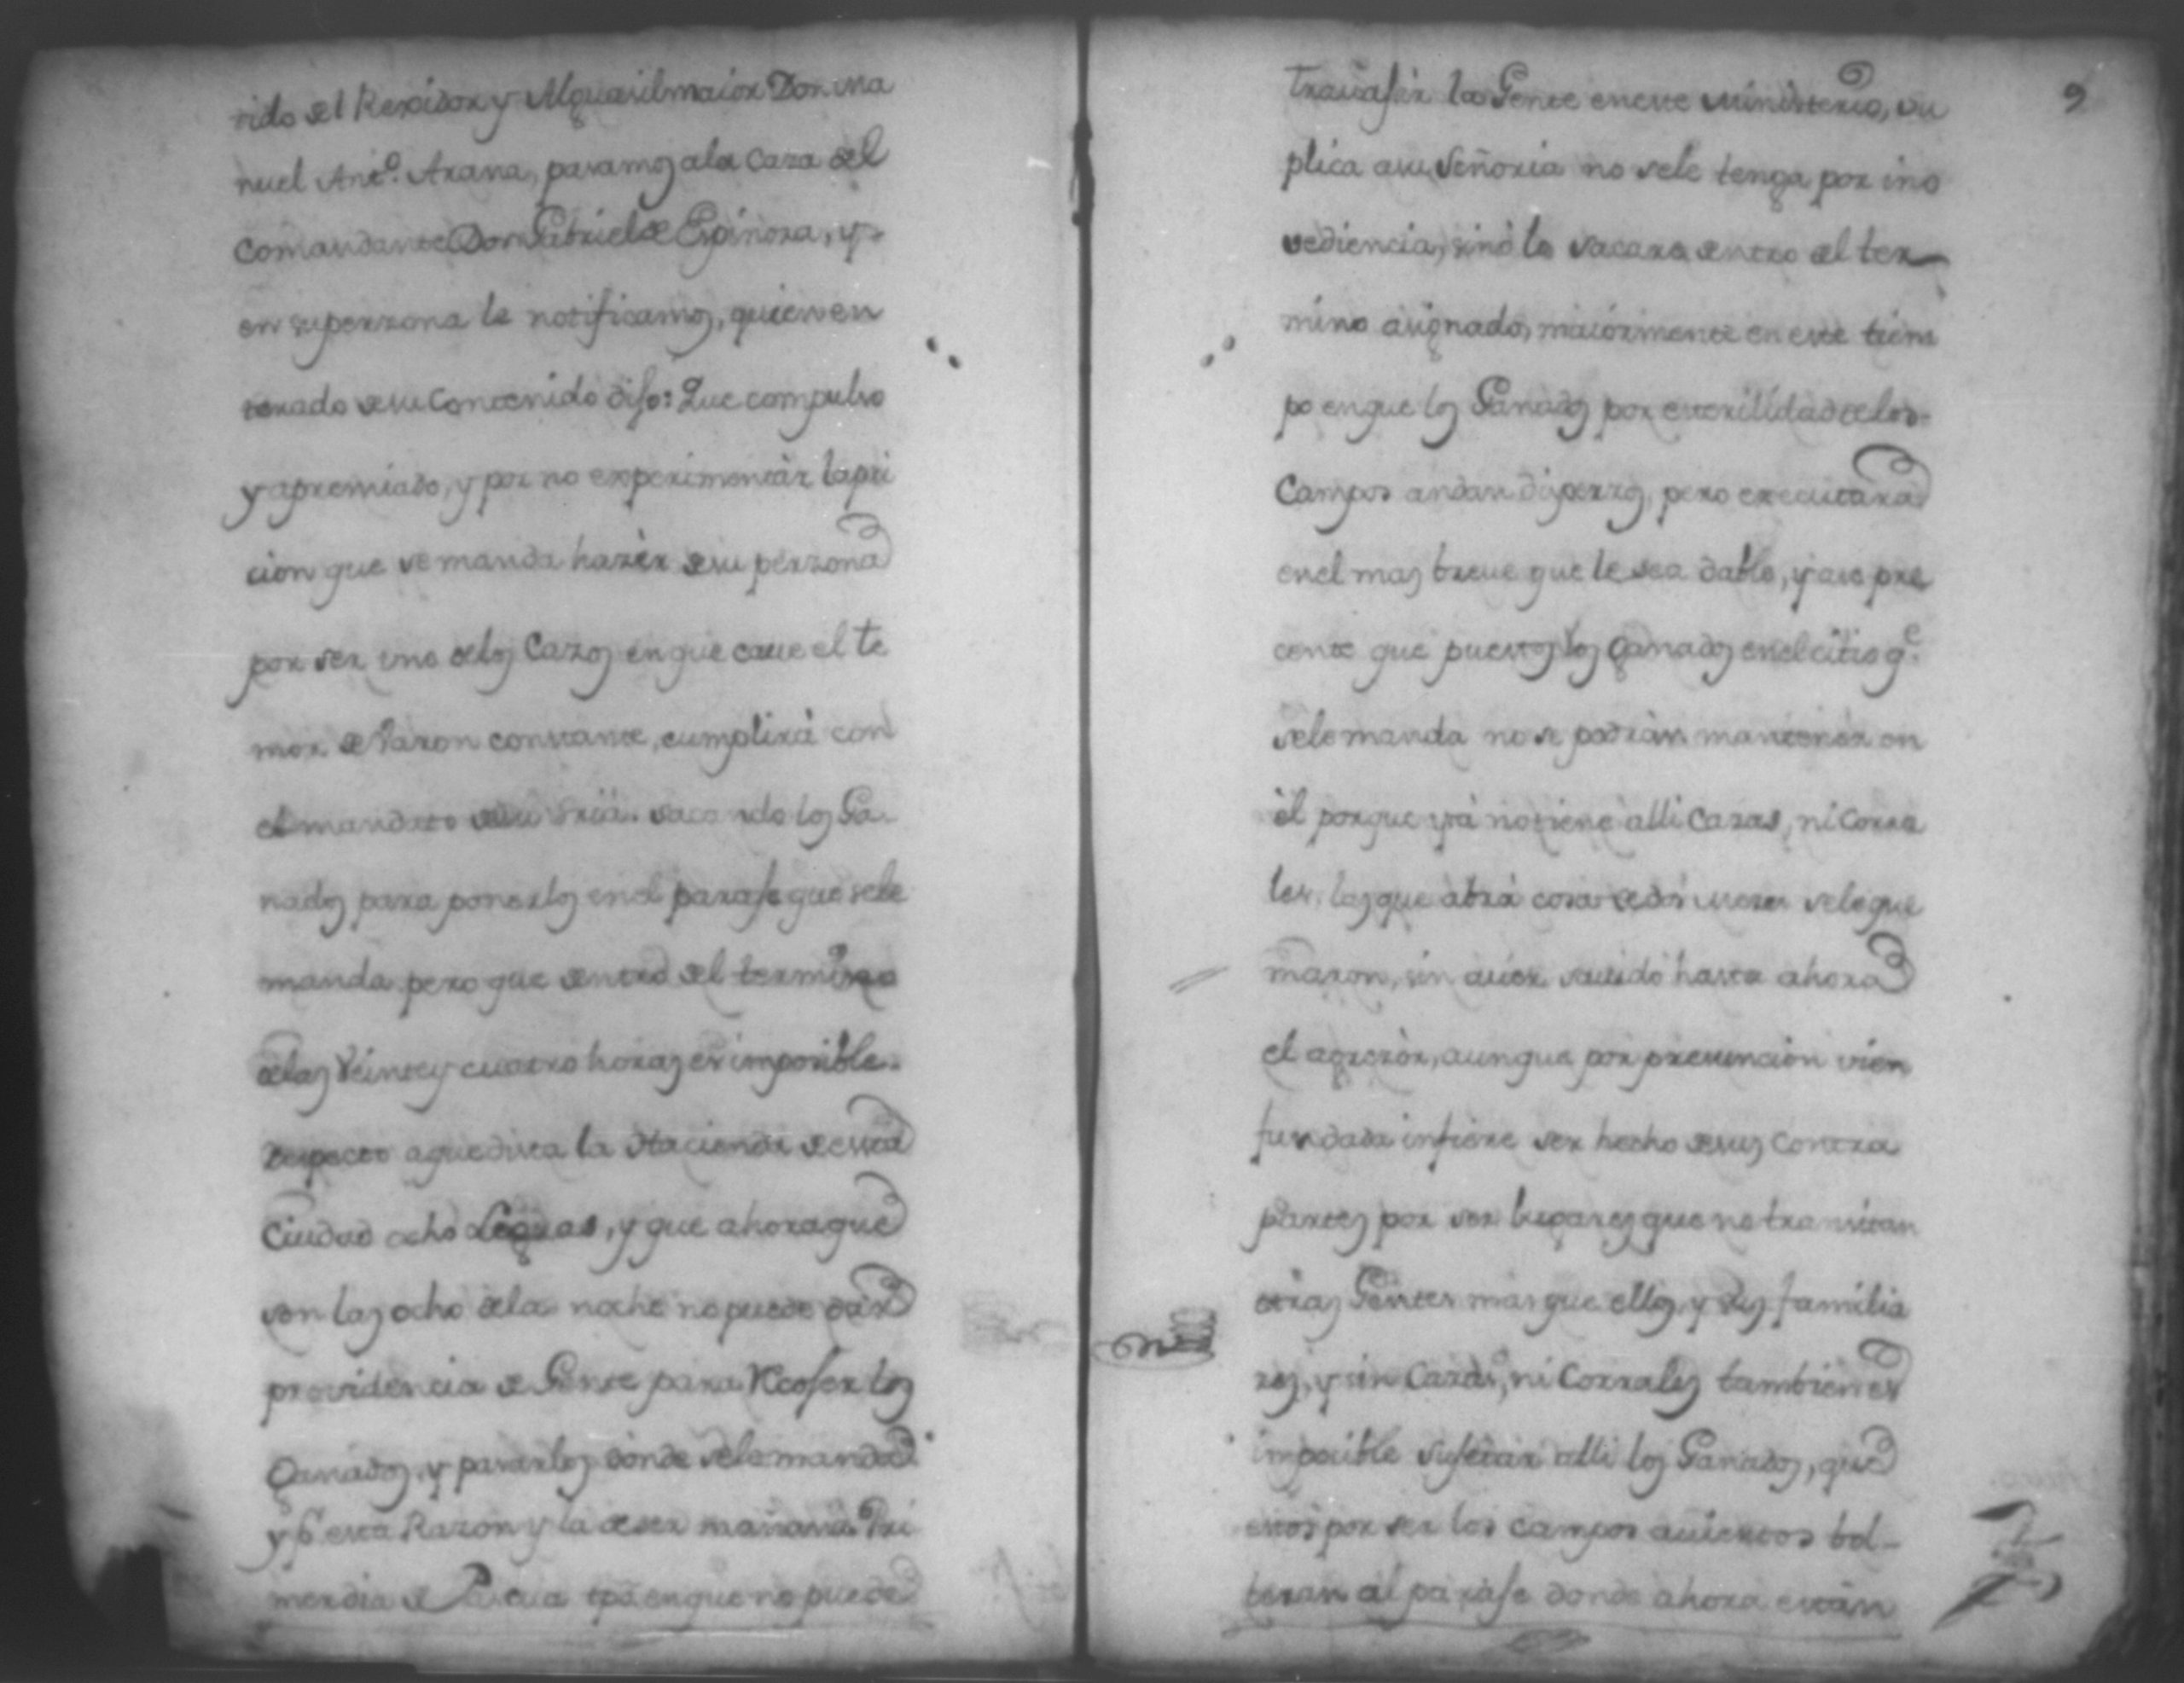 rido del Rexidor y Alguasil maior Don Ma
nuel Antº. Arana, pasamos a la Caza del
Comandante Don Gabriel de Espinoza, y
en su perzona le notificamos, quien en
terado de su Contenido dijo: Que compulso
y apremiado, y por no experimentàr la pri
cion que se manda hazèr de su perzona
por ser uno de los Cazos en que caue el te
mor de Varon constante, cumplirà con
el mandato de su Sria. sacando los Ga
nados para ponerlos en el paraje que se le
manda pero que dentro del termino
de las Veinte y cuatro horas es imposible
respecto a que dista la Hacienda de esta
Ciudad ocho Leguas, y que ahora que
son las ocho de la noche no puede dàr
providencia de Gente para Recojer los
Ganados, y pasarlos donde se le manda
y pr. esta Razon y la de ser mañana Pri
mer dia de Pascua tpo en que no puede
9
Trauajar la Gente en este Ministerio, su
plica a su Señoria no se le tenga por ino
vediencia, sinò lo sacare dentro del ter
mino asignado, maiormente en este tiem
po en que los Ganados por esterilidad de los
Campos andan disperzos, pero executara
en el mas breue que le sea dable, y ase pre
cente que puestos los Ganados en el citio qe.
se le manda no se podràn mantenèr en
èl porque yà no tiene alli Cazas, ni Corra
les, las que abrà cosa de dos meses se le que
maron, sin auer sauido hasta ahora
el agresòr, aunque por presuncion vien
fundada infiere ser hecho de sus Contra
partes por ser lugares que no transitan
otras Gentes mas que ellos, y sus familia
res, y sin Cazas, ni Corrales tambien es
imposible sujetar alli los Ganados, que
estos por ser los campos auiertos bol-
teran al paraje donde ahora estàn